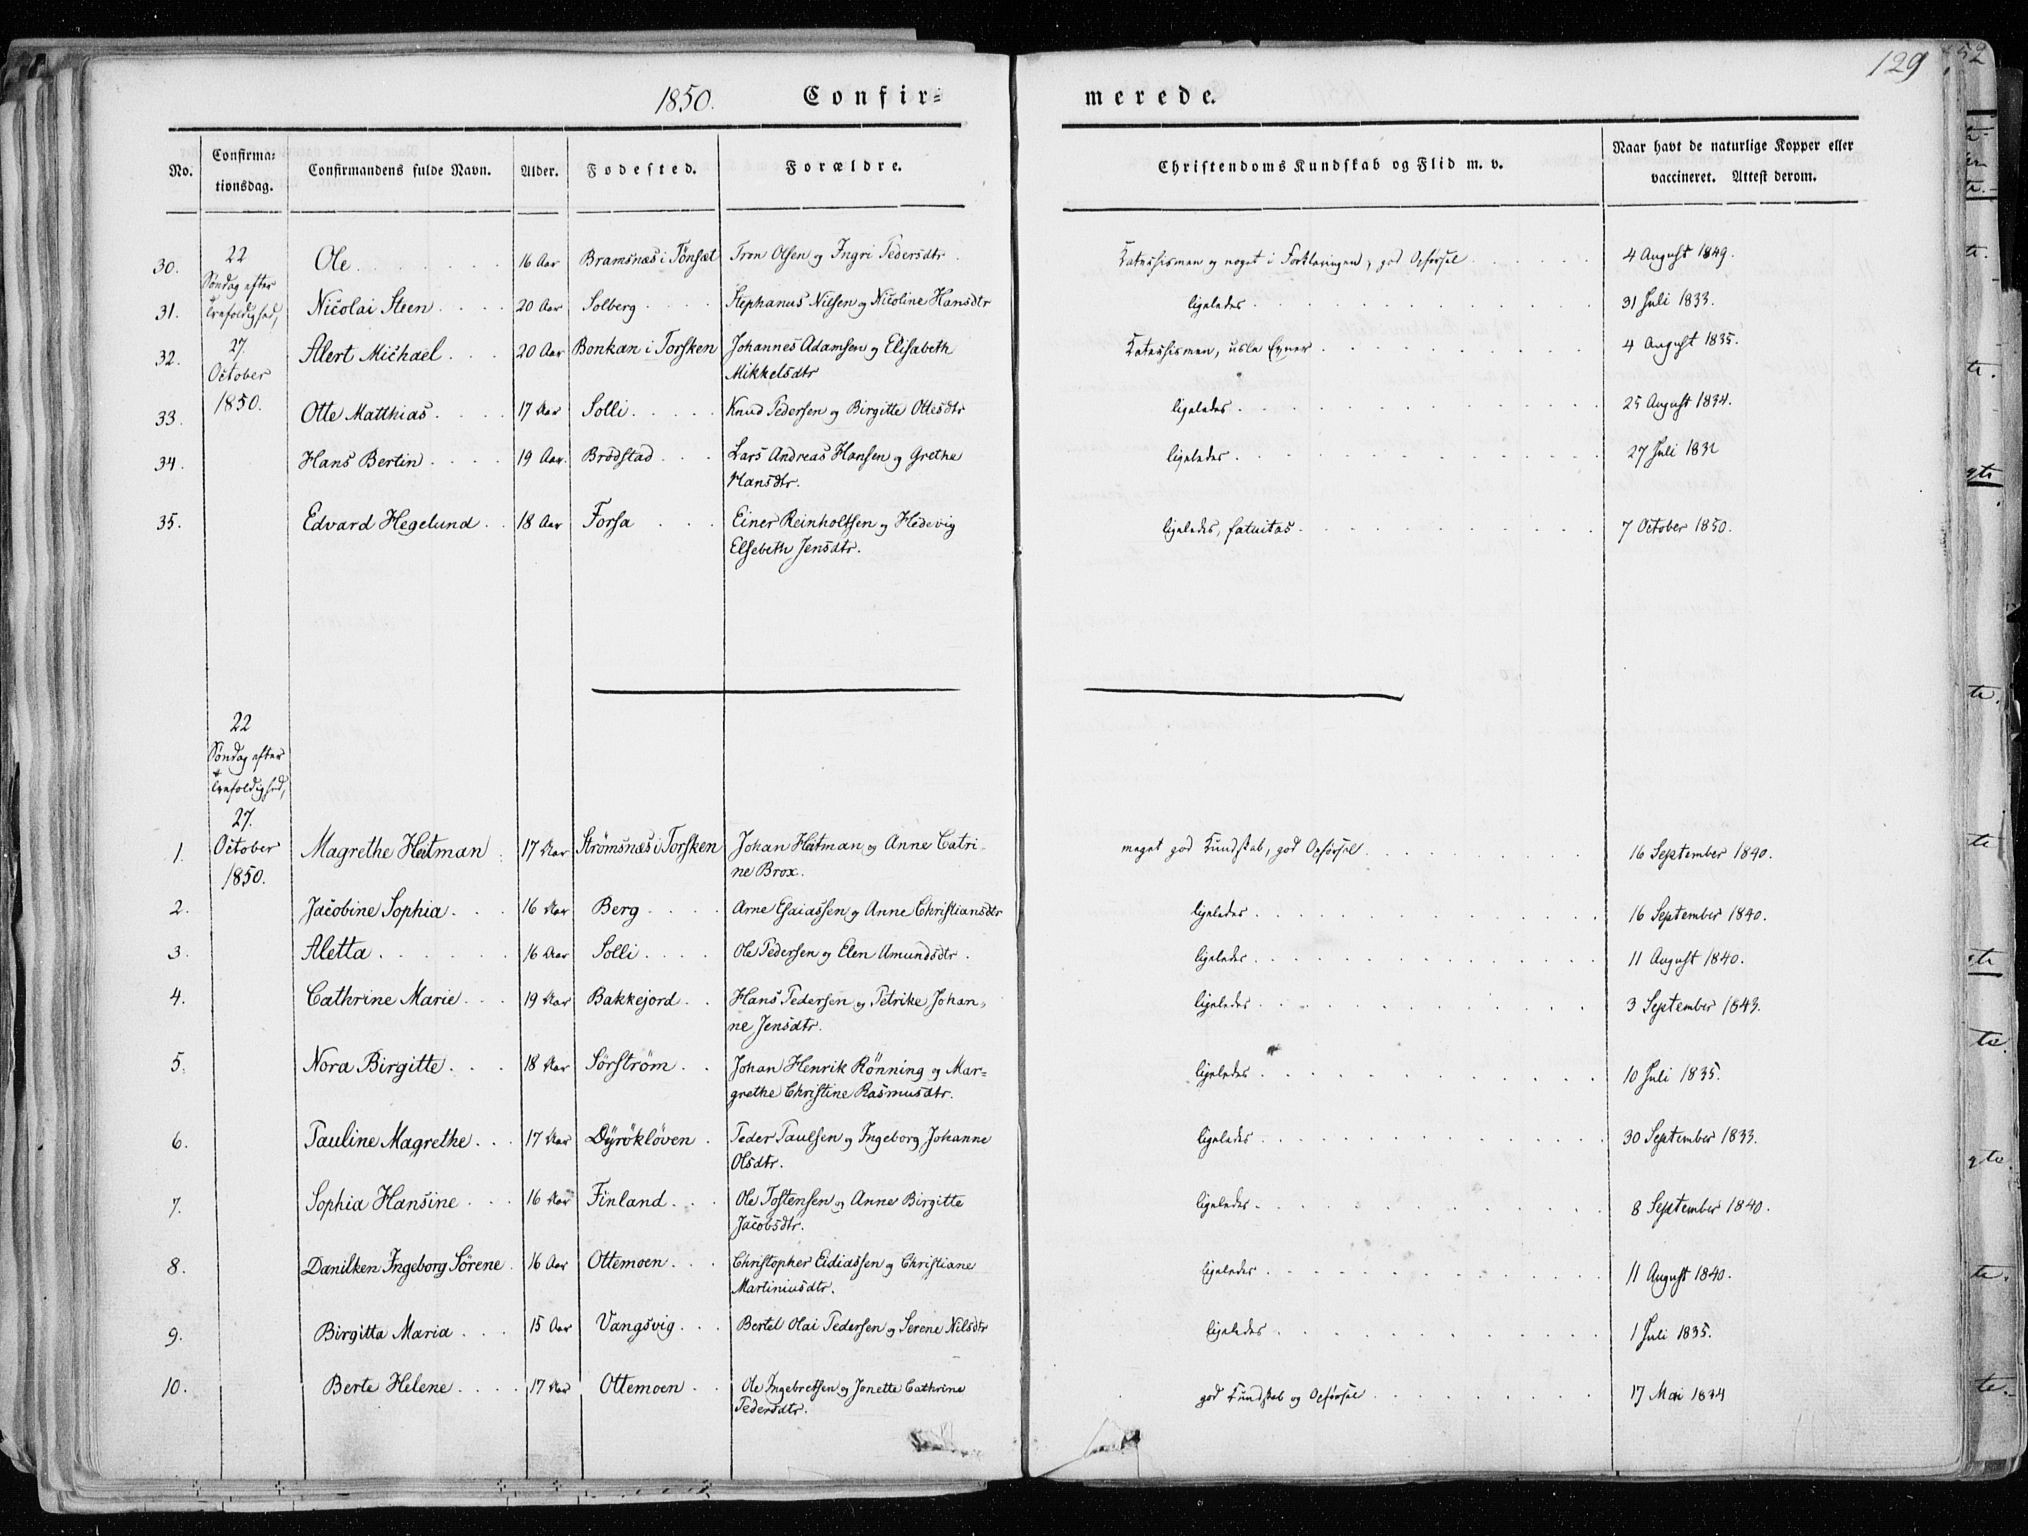 1850. Confir= merede. 129 152
No. Confirma= Confirmandens fulde Navn. Alder. Fødested. Forældre. Christendoms Kundskab og Flid m. v. Naar havt de naturlige Kopper eller
tionsdag. vaccineret. Attest derom.
30. 22 Ole 16 Aar Bramsnæs i Tønsæt Tron Olsen og Ingri Pedersdtr. Katechismen og noget i Forklaringen, god Opførsel 4 August 1849.
Søndag efter
31. Trefoldighed, Nicolai Steen 20 Aar Solberg Stephanus Nilsen og Nicoline Hansdtr ligeledes 31 Juli 1833.
32. 27. Alert Michael 20 Aar Bonkan i Torsken Johannes Adamsen og Elisabeth Katechismen, usle Evner 4 August 1835.
October Mikkelsdtr
33. 1850. Otte Matthias 17 Aar Solli Knud Pedersen og Birgitte Ottesdtr ligeledes 25 August 1834.
34. Hans Bertin 19 Aar. Brødstad Lars Andreas Hansen og Grethe ligeledes 27 Juli 1832
Hansdtr.
35. Edvard Hegelund 18 Aar Forsa Einer Reinholtsen og Hedevig ligeledes, fatuitas 7 October 1850.
Elsebeth Jensdtr.
22
Søndag efter
Trefoldighed,
27.
1. October Magrethe Heitman 17 Aar Strømsnæs i Torsken Johan Heitman og Anne Catri- meget god Kundskab, god Opførsel 16 September 1840.
1850. ne Brox.
2. Jacobine Sophia 16 Aar Berg Arne Esaiassen og Anne Christiansdtr ligeledes 16 September 1840.
3. Aletta 16 Aar Solli Ole Pedersen og Elen Amundsdtr ligeledes 11 August 1840.
4. Cathrine Marie 19 Aar Bakkejord Hans Pedersen og Petrike Johan= ligeledes 3 September 1843.
ne Jensdtr.
5. Nora Birgitte 18 Aar Sørstrøm Johan Henrik Rønning og Mar= ligeledes 10 Juli 1835.
grethe Christine Rasmusdtr.
6. Pauline Magrethe 17 Aar Dyrökløven Peder Paulsen og Ingeborg Johanne ligeledes 30 September 1833.
Olsdtr.
7. Sophia Hansine 16 Aar Finland Ole Tostensen og Anne Birgitte ligeledes 8 September 1840.
Jacobsdtr.
8. Danilken Ingeborg Sørene 16 Aar Ottemoen Christopher Eidiassen og Christiane ligeledes 11 August 1840.
Martiniusdtr.
9. Birgitta Maria 15 Aar Vangsvig Bertel Olai Pedersen og Serene Nilsdtr ligeledes 1 Juli 1835.
10. Berte Helene 17 Aar Ottemoen Ole Ingebretsen og Jonette Cathrine god Kundskab og Opførsel 17 Mai 1834
Pedersdtr.